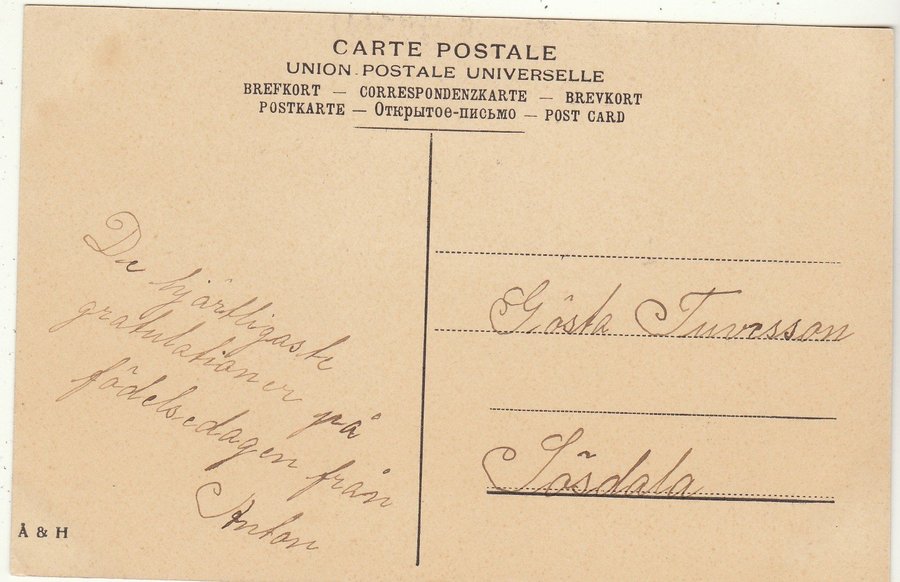 CARTE POSTALE
UNION POSTALE UNIVERSELLE
BREFKORT — CORRESPONDENZKARTE — BREVKORT
POSTKARTE — Открытое-письмо — POST CARD
De hjärtligaste
gratulationer på
födelsedagen från
Anton
Gösta Turesson
Sösdala
Å & H